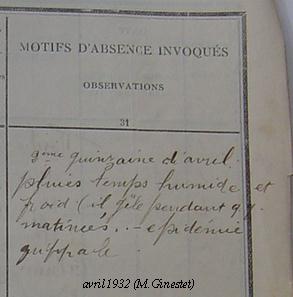 MOTIFS D'ABSENCE INVOQUÉS
OBSERVATIONS
31
2ème quinzaine d'avril.
pluies temps humide et
froid (il gèle pendant q.q.
matinées... - epidémie
grippale
avril 1932 (M. Ginestet)